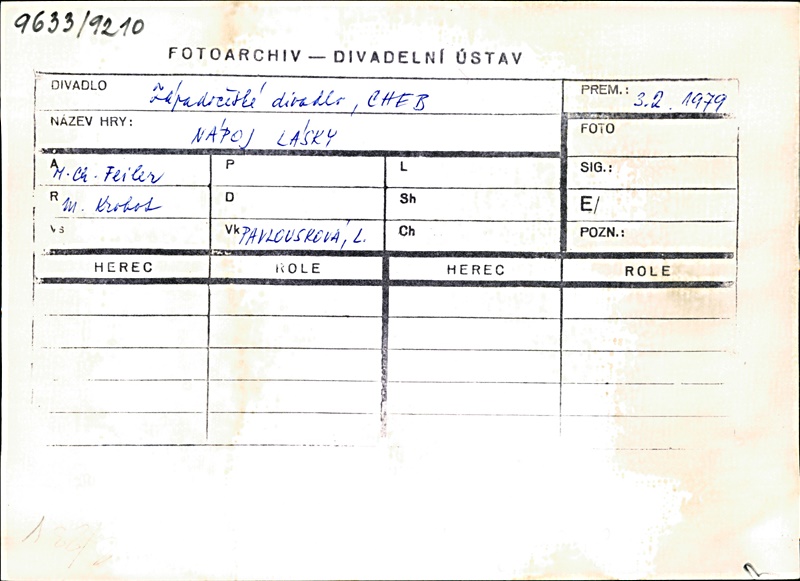 9633/9210
FOTOARCHIV — DIVADELNÍ ÚSTAV
DIVADLO Západočeské divadlo, CHEB PREM.: 3.2. 1979
NÁZEV HRY: NÁPOJ LÁSKY FOTO
A H. Ch. Feiler P L SIG.:
R M. Krobot D Sh E/
Vs Vk PAVLOUSKOVÁ, L. Ch POZN.:
HEREC ROLE HEREC ROLE